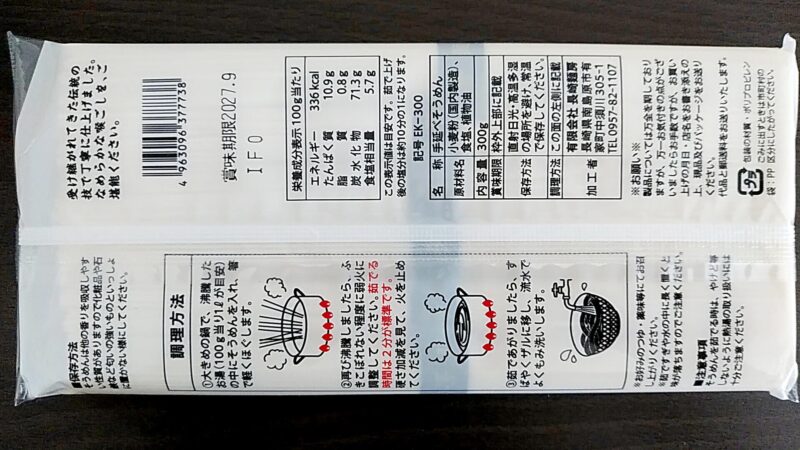 受け継がれてきた伝統の
技で丁寧に仕上げました。
なめらかな喉ごしを、ご
堪能ください。
4 963096 377738
賞味期限2027.9
IFO
栄養成分表示100g当たり
エネルギー 336kcal
たんぱく質 10.9g
脂質 0.8g
炭水化物 71.3g
食塩相当量 5.7g
この表示値は目安です。茹で上げ
後の塩分は約10分の1になります。
記号 EK-300
名称 手延べそうめん
原材料名 小麦粉(国内製造)、
食塩、植物油
内容量 300g
賞味期限 枠外上部に記載
保存方法 直射日光・高温多湿
の場所を避け、常温
で保存してください。
調理方法 この面の左側に記載
加工者 有限会社 長崎麺房
長崎県南島原市有
家町中須川305-1
TEL0957-82-1107
※お願い※
製品については万全を期しており
ますが、万一お気付きの点がござ
いましたらお手数ですが、お買い
上げの月日・店名をお書き添えの
上、現品及びパッケージをお送り
ください。
代品と郵送料をお送りいたします。
包装の材質・ポリプロピレン
ごみに出すときは市町村の
区分にしたがってください。
プラ
袋:PP
保存方法
そうめんは他の香りを吸収しやす
い性質がありますので化粧品や石
鹸など匂いの強いものといっしょ
に置かない様にしてください。
調理方法
①大きめの鍋で、沸騰した
お湯(100g当り1ℓが目安)
の中にそうめんを入れ、箸
で軽くほぐします。
②再び沸騰しましたら、ふ
きこぼれない程度に弱火に
調整してください。茹でる
時間は2分が標準です。
硬さ加減を見て、火を止め
ます。
③茹であがりましたら、す
ばやくザルに移し、流水で
よくもみ洗いします。
※お好みのつゆ・薬味等にてお召
し上がりください。
※茹ですぎや水の中に長く置くと
味が落ちますのでご注意ください。
■注意事項
そうめんを茹でる時は、やけど等
しないように熱湯の取り扱いには
十分ご注意ください。